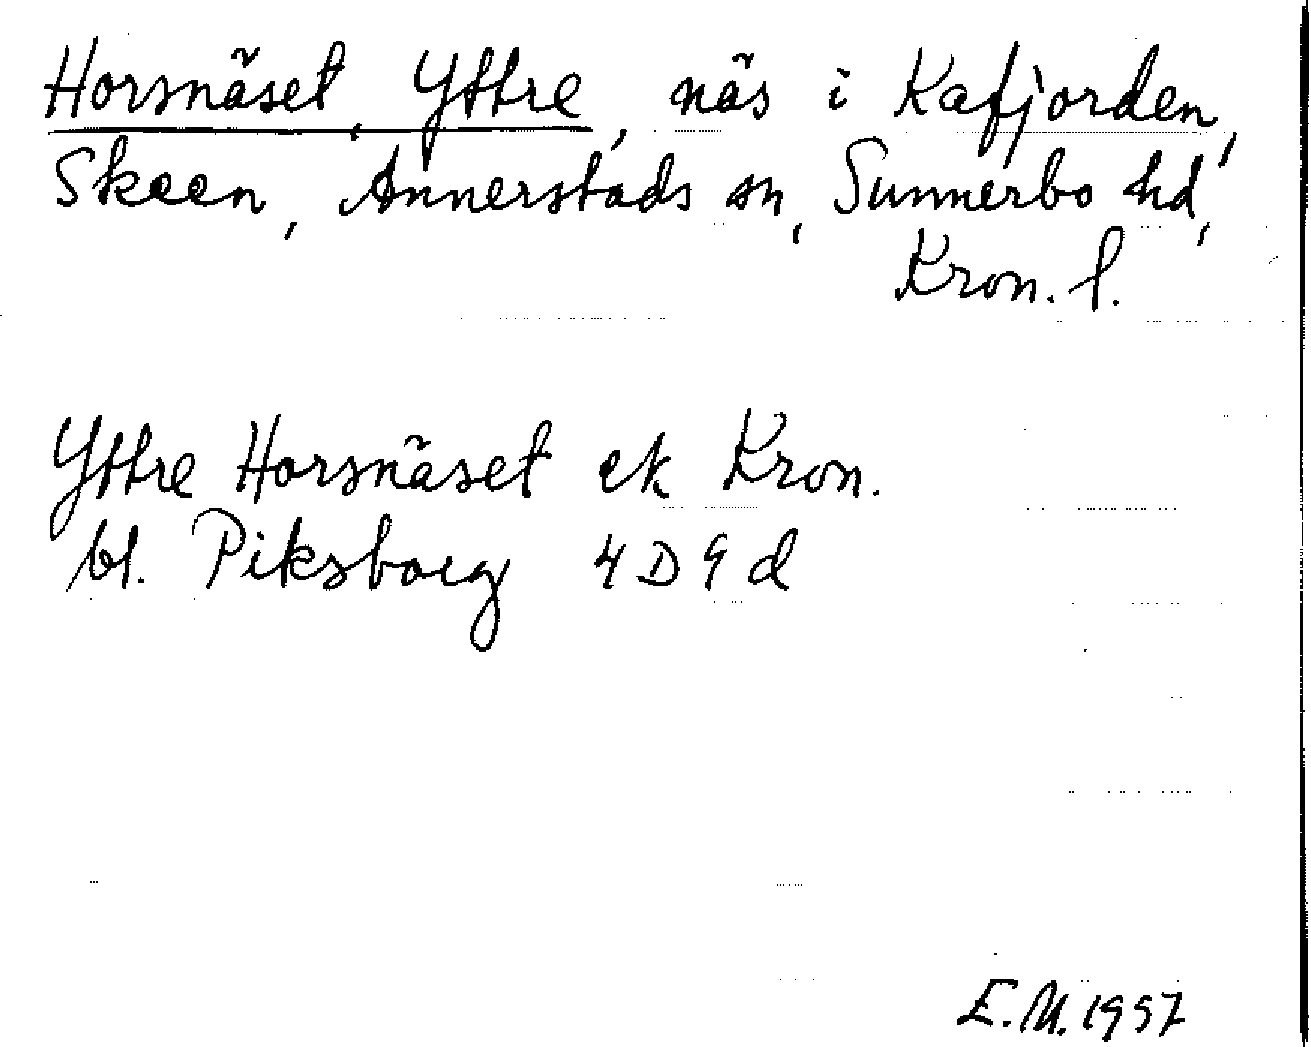 Horsnäset, Yttre, näs i Kafjorden,
Skeen, Annerstads sn, Sunnerbo hd,
Kron. l.
Yttre Horsnäset ek Kron.
bl. Piksborg 4 D 9 d
E.M. 1957